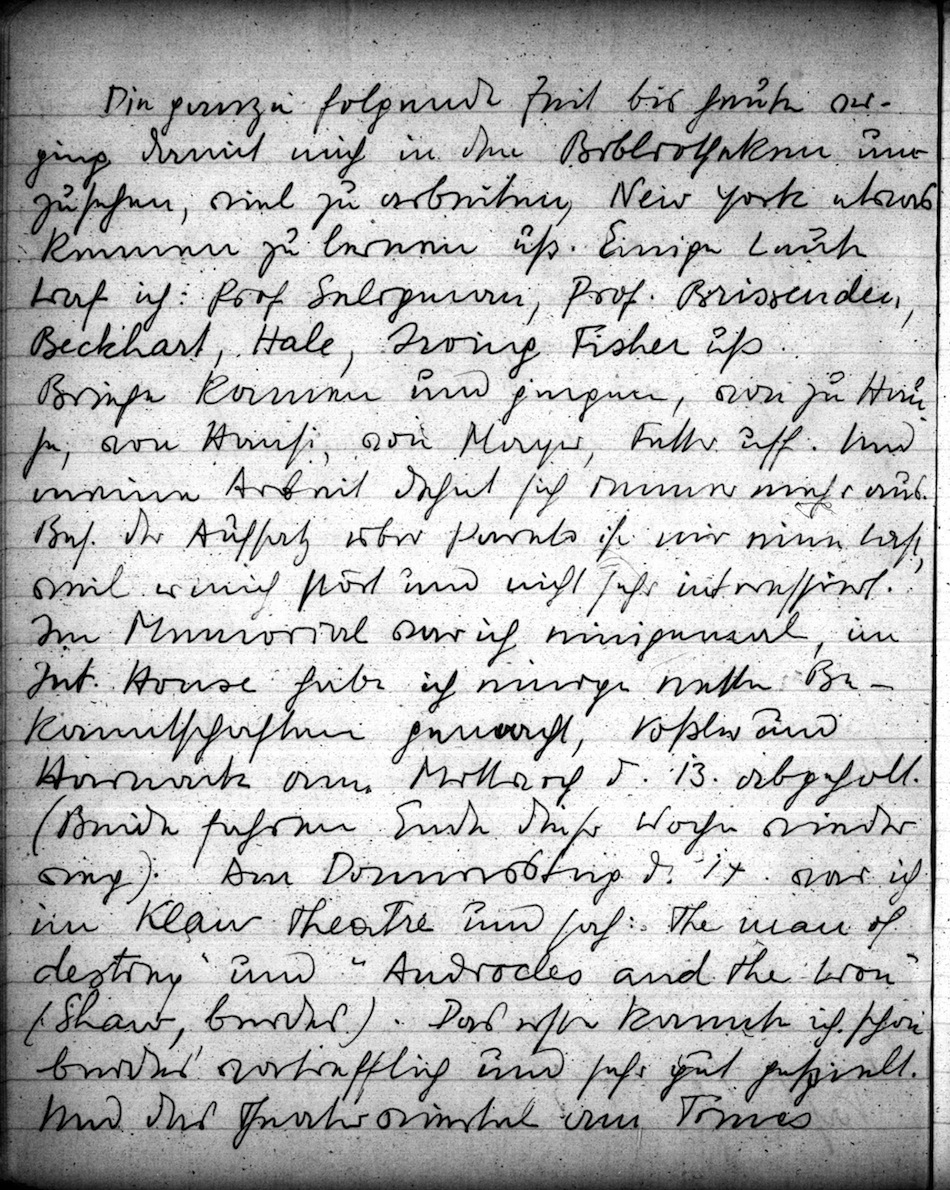 Die ganze folgende Zeit bis heute ver-
ging damit mich in den Bibliotheken um
zusehen, viel zu arbeiten, New York etwas
kennen zu lernen usf. Einige Leute
traf ich: Prof Seligman, Prof. Brissenden,
Beckhart, Hale, Irving Fisher usf
Briefe kamen und gingen, von zu Hau
se, von Hansi, von Mayer, usff. Und
meine Arbeit dehnt sich immer mehr aus.
Bes. der Aufsatz über ist mir eine Last,
weil er mich stört und nicht sehr interessiert.
Im Memorial war ich einigemal, im
Int. House habe ich einige nette Be-
kanntschaften gemacht, und
am Mittwoch d. 13. abgeholt.
(Beide fahren Ende dieser Woche wieder
weg). Am Donnerstag d. 14. war ich
im Klaw Theatre und sah: The man of
destiny" und "Androcles and the Lion"
(Shaw, beides). Das erste kannte ich schon
beides vortrefflich und sehr gut gespielt.
Und das Theaterviertel am Times